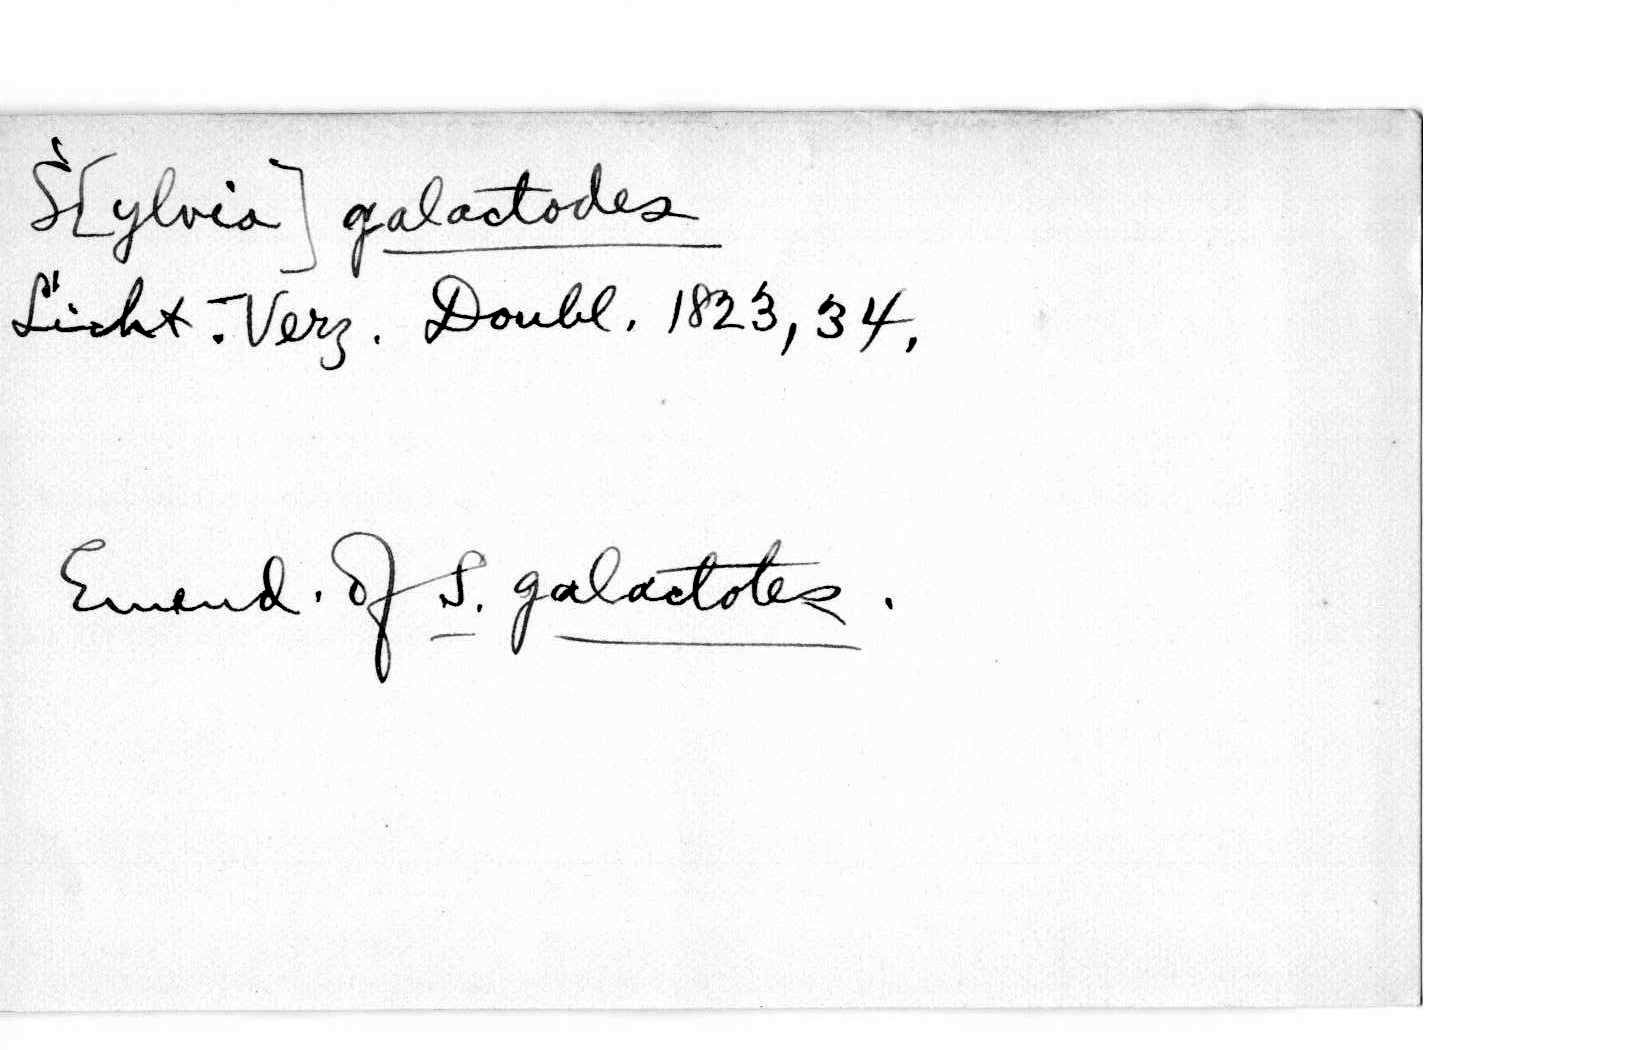 S[ylvia] galactodes
Licht. Verz. Doubl. 1823, 34.
Emend. of S. galactotes.